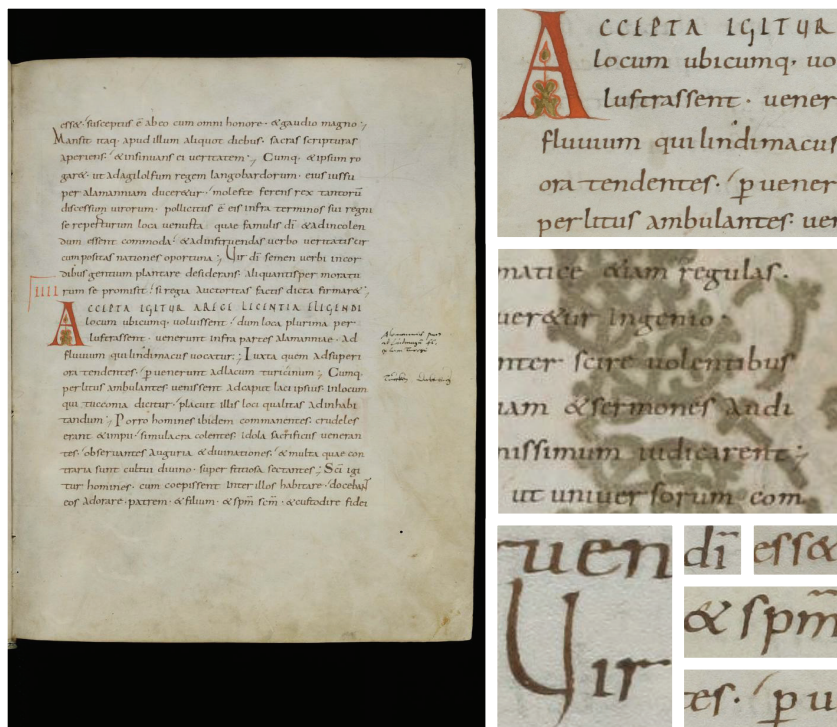 esse& susceptus ē abeo cum omni honore · & gaudio magno ;
Mansit itaq· apud illum aliquot diebus · sacras scripturas
aperiens · & insinuans ei veritatem ; Cumq· & ipsum ro
gar& · ut ad agilolfum regem langobardorum · eius iussu
per alamanniam ducer&ur · moleste ferens rex tantorū
discessum virorum · pollicitus ē eis infra terminos sui regni
se reperturum loca venusta · quae famulis dī & ad incolen
dum essent commoda · & ad instruendas verbo veritatis cir
cumpositas nationes oportuna ; Vir dī semen verbi in cor
dibus gentium plantare desiderans · aliquantisper moratu
rum se promisit · si regia auctoritas factis dicta firmar& ;
IIII
ACCEPTA IGITUR A REGE LICENTIA ELIGENDI
locum ubicumq· voluissent · dum loca plurima per
lustrassent · venerunt infra partes alamanniae · ad
fluvium qui lindimacus vocatur ; Iuxta quem ad superi
ora tendentes · pvenerunt ad lacum turicinum ; Cumq·
per litus ambulantes venissent ad caput laci ipsius · in locum
qui tucconia dicitur · placuit illis loci qualitas ad inhabi
tandum ; Porro homines ibidem commanentes · crudeles
erant & impii · simulacra colentes · idola sacrificiis veneran
tes · observantes auguria & divinationes · & multa quae con
traria sunt cultui divino · superstitiosa sectantes ; Scī igi
tur homines · cum coepissent inter illos habitare · doceba&
eos adorare · patrem · & filium · & spm̄ scm̄ · & custodire fidei
CCEPTA IGITUR
locum ubicumq· vo
lustrassent · vener
fluvium qui lindimacus
ora tendentes · pvener
per litus ambulantes · ven
matice &iam regulas ·
uer&ur ingenio ·
nter scire volentibus
am & sermones audi
nissimum iudicarent ;
ut universorum com
ruen
Vir
dī
esse&
& spm̄
es · p u